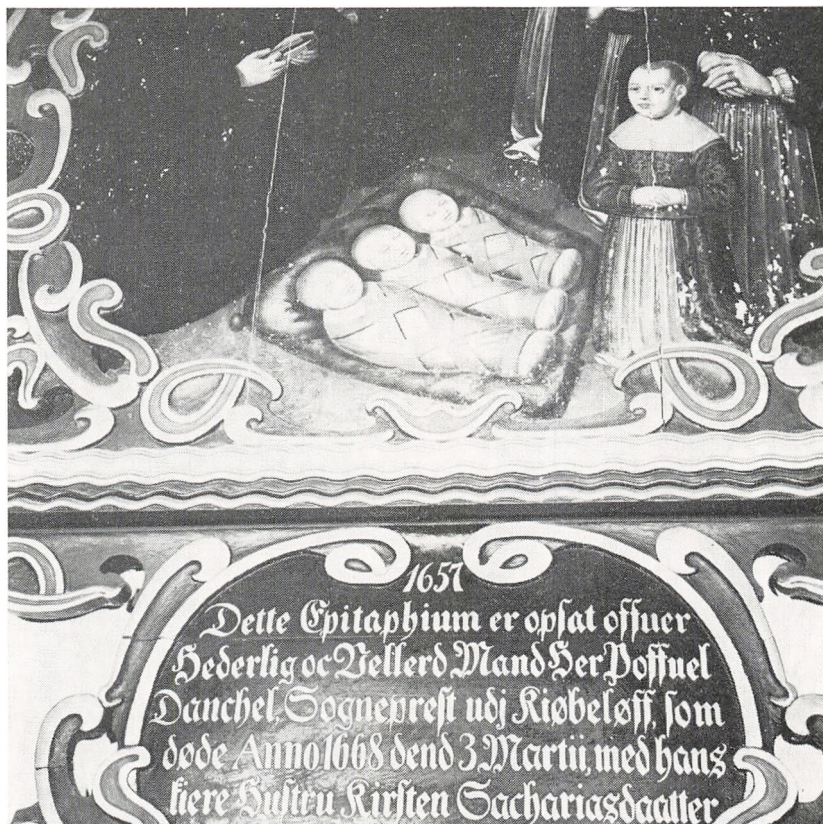 1657
Dette Epitaphium er opsat offuer
Hederlig oc Vellerd Mand Her Poffuel
Danchel, Sogneprest udj Kiøbeløff, som
døde Anno 1668 dend 3. Martii, med hans
kiere Hustru Kirsten Sachariasdaatter